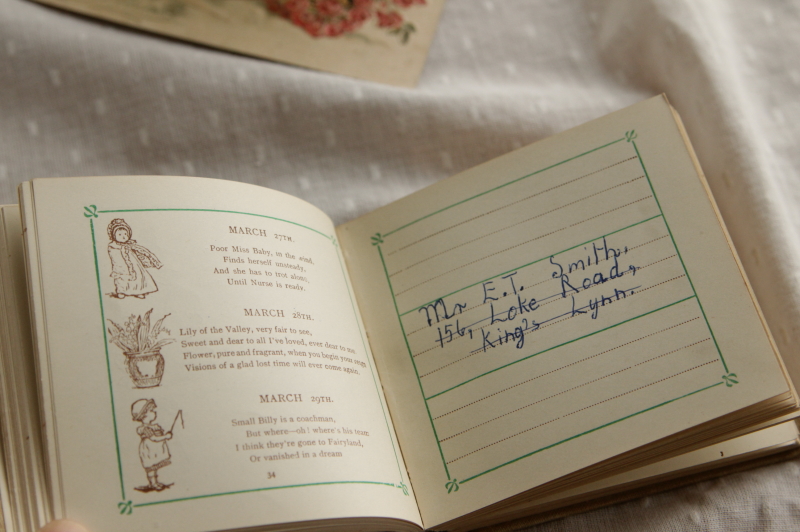 MARCH 27TH.
Poor Miss Baby, in the wind,
Finds herself unsteady,
And she has to trot alone,
Until Nurse is ready.
MARCH 28TH.
Lily of the Valley, very fair to see,
Sweet and dear to all I've loved, ever dear to me.
Flower, pure and fragrant, when you begin your
Visions of a glad lost time will ever come again.
MARCH 29TH.
Small Billy is a coachman,
But where—oh! where's his team
I think they're gone to Fairyland,
Or vanished in a dream
34
Mr E.T. Smith,
156, Loke Road,
King's Lynn.